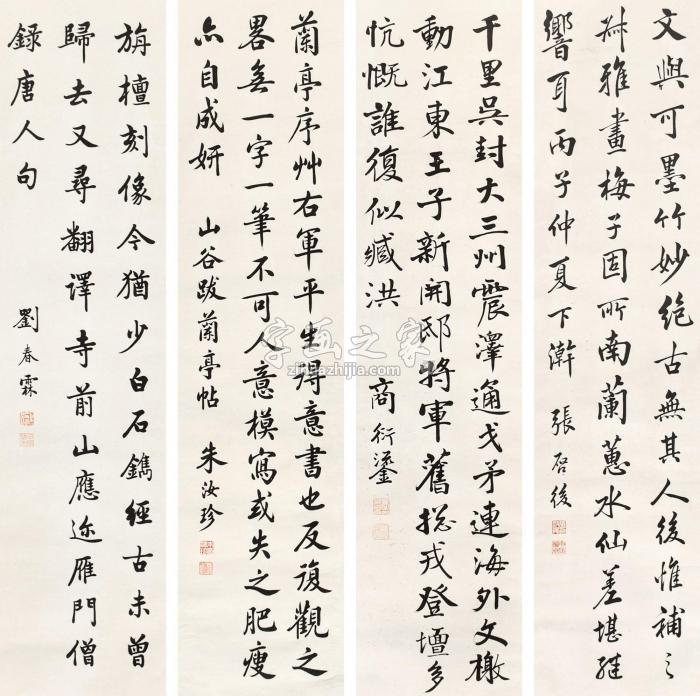 文與可墨竹妙絶古無其人後惟補之
畫梅子固所南蘭蕙水仙差堪繼
響耳丙子仲夏下澣 張啓後
千里吳封大三州震澤通戈矛連海外文檄
動江東王子新開邸將軍舊總戎登壇多
忼慨誰復似臧洪 商衍鎏
蘭亭序艸右軍平生得意書也反復觀之
畧無一字一筆不可人意模寫或失之肥瘦
亦自成妍 山谷跋蘭亭帖 朱汝珍
旃檀刻像今猶少白石鐫經古未曾
歸去又尋翻譯寺前山應迩雁門僧
錄唐人句 劉春霖
字画之家
zihuazhijia.com